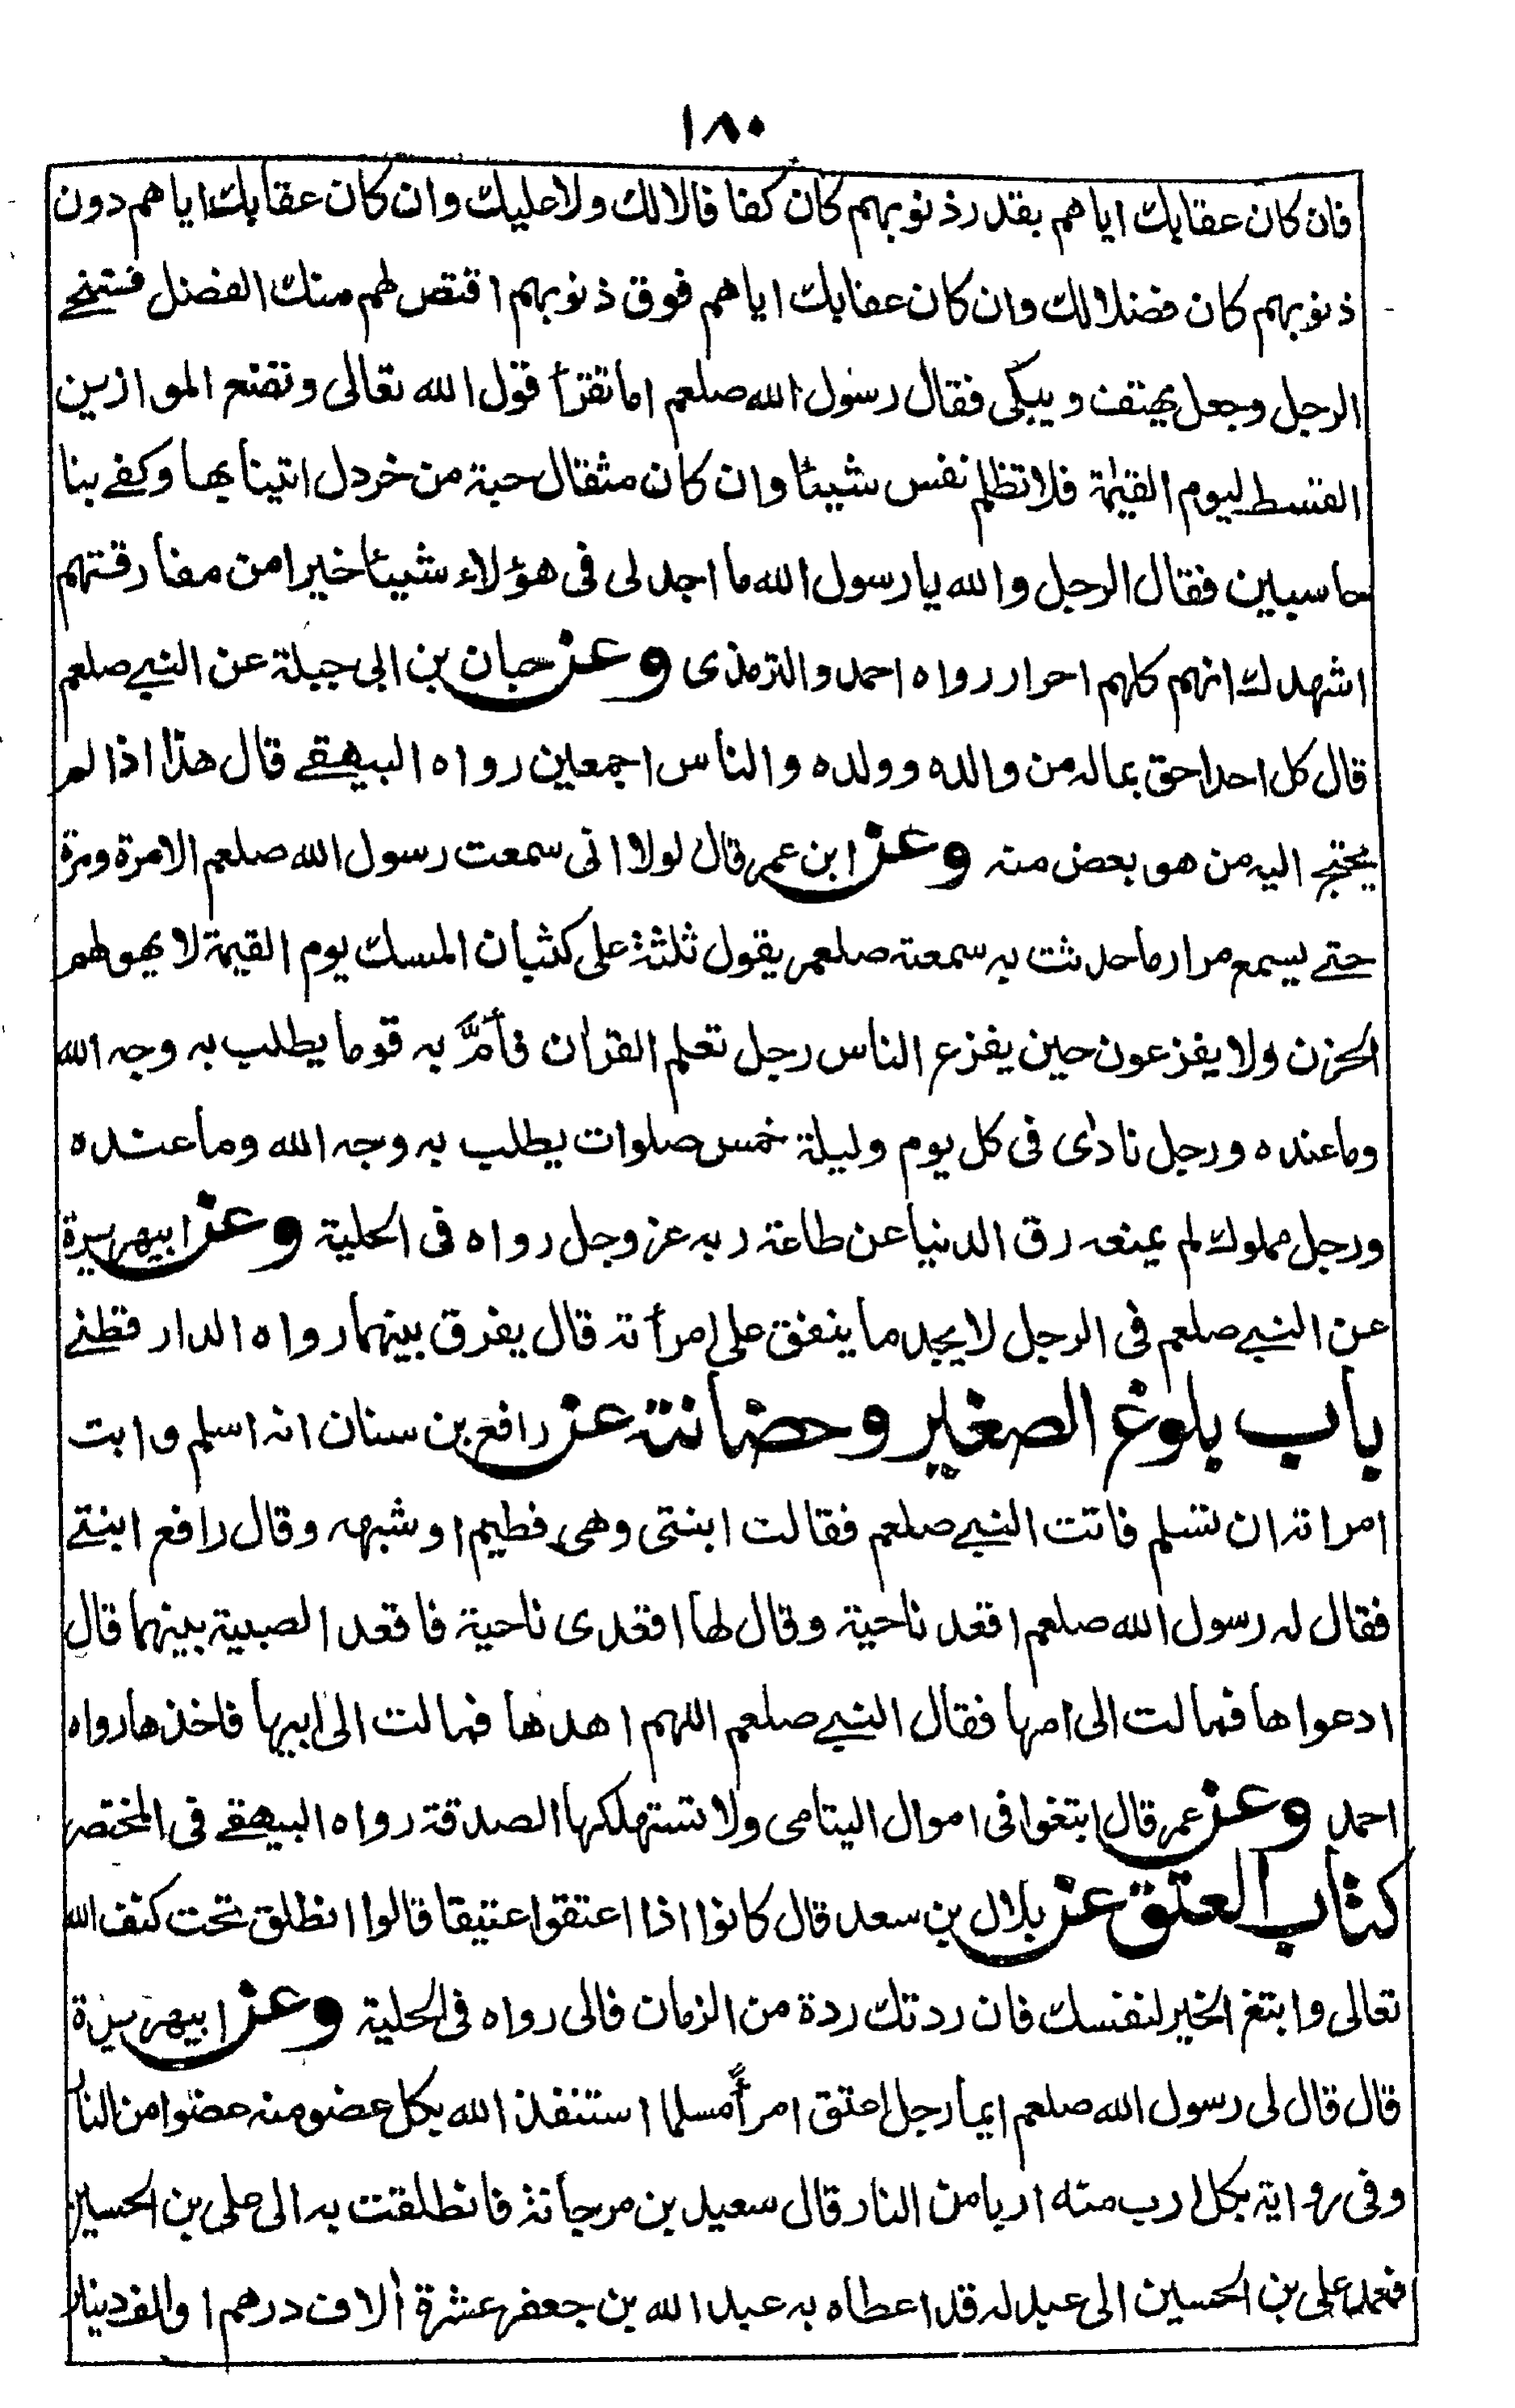 ١٨٠
فان كان عقابك اياهم بقدر ذنوبهم كان كفافا لا لك ولا عليك وان كان عقابك اياهم دون
ذنوبهم كان فضلا لك وان كان عقابك اياهم فوق ذنوبهم اقتص لهم منك الفضل فتنحے
الرجل وجعل يهتف ويبكى فقال رسول الله صلعم اما تقرأ قول الله تعالى ونضع الموازين
القسط ليوم القيٰمة فلا تظلم نفس شيئا وان كان مثقال حبة من خردل اتينا بها وكفے بنا
حاسبين فقال الرجل والله يا رسول الله ما اجد لى فى هؤلاء شيئا خيرا من مفارقتهم
اشهدك انهم كلهم احرار رواه احمد والترمذى وعن حبان بن ابى جبلة عن النبے صلعم
قال كل احد احق بماله من والده وولده والناس اجمعين رواه البيهقے قال هذا اذا لم
يحتج اليه من هو بعض منه وعن ابن عمر قال لولا انى سمعت رسول الله صلعم الامرة ومرة
حتے يسمع مرار ما حدثت به سمعته صلعم يقول ثلثة على كثبان المسك يوم القيمة لا يهولهم
الحزن ولا يفزعون حين يفزع الناس رجل تعلم القرأن فأمّ به قوما يطلب به وجه الله
وما عنده ورجل نادى فى كل يوم وليلة خمس صلوات يطلب به وجه الله وما عنده
ورجل مملوك لم يمنعه رق الدنيا عن طاعة ربه عز وجل رواه فى الحلية وعن ابيهريرة
عن النبے صلعم فى الرجل لا يجد ما ينفق على امرأته قال يفرق بينهما رواه الدارقطنے
باب بلوغ الصغير وحضانته عن رافع بن سنان انه اسلم وابت
امراته ان تسلم فاتت النبے صلعم فقالت ابنتى وهى فطيم او شبهه وقال رافع ابنتے
فقال له رسول الله صلعم اقعد ناحية وقال لها اقعدى ناحية فاقعد الصبية بينهما قال
ادعواها فمالت الى امها فقال النبے صلعم اللهم اهدها فمالت الى ابيها فاخذها رواه
احمد وعن عمر قال ابتغوا فى اموال اليتامى ولا تستهلكها الصدقة رواه البيهقے فى المختصر
كتاب العتق عن بلال بن سعد قال كانوا اذا اعتقوا عتيقا قالوا انطلق تحت كنف الله
تعالى وابتغ الخير لنفسك فان ردتك ردة من الزمان فالى رواه فى الحلية وعن ابيهريرة
قال قال لى رسول الله صلعم ايما رجل اعتق امرأً مسلما استنفذ الله بكل عضو منه عضوا من النار
وفى رواية بكل ارب منه اربا من النار قال سعيد بن مرجانة فانطلقت به الى على بن الحسين
فعمد على بن الحسين الى عبد له قد اعطاه به عبد الله بن جعفر عشرة ألاف درهم او الف دينار